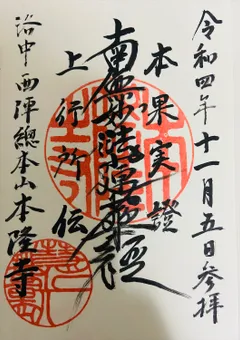 令和四年十一月五日参拝
本果実證
南無妙法蓮華経
上行所伝
洛中西陣総本山本隆寺